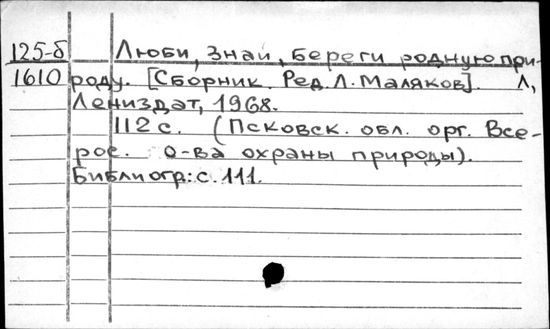 125-б Люби, знай, береги родную при-
1610 роду. [Сборник. Ред. Л. Маляков]. Л,
Лениздат, 1968.
112 с. (Псковск. обл. орг. Все-
рос. о-ва охраны природы).
Библиогр: с. 111.